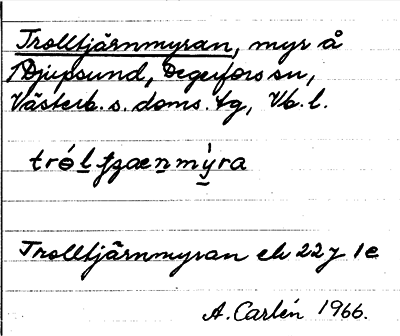 Trolltjärnmyran, myr å
Djupsund, Degerfors sn,
Västerb. s. doms. tg, Vb. l.
Trolltjärnmyran ek 22 J 1e
A. Carlén 1966.